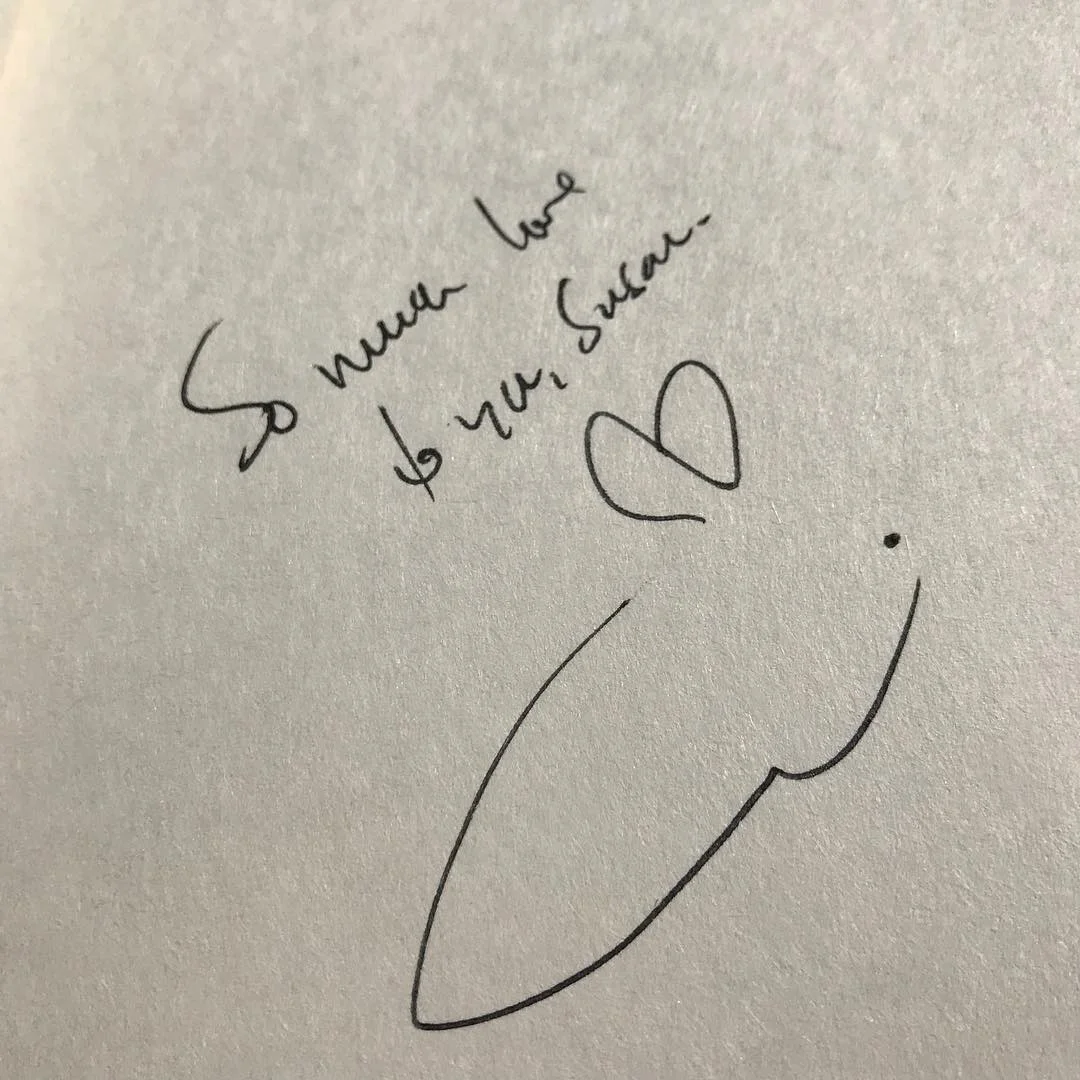 So much love
to you, Susan.